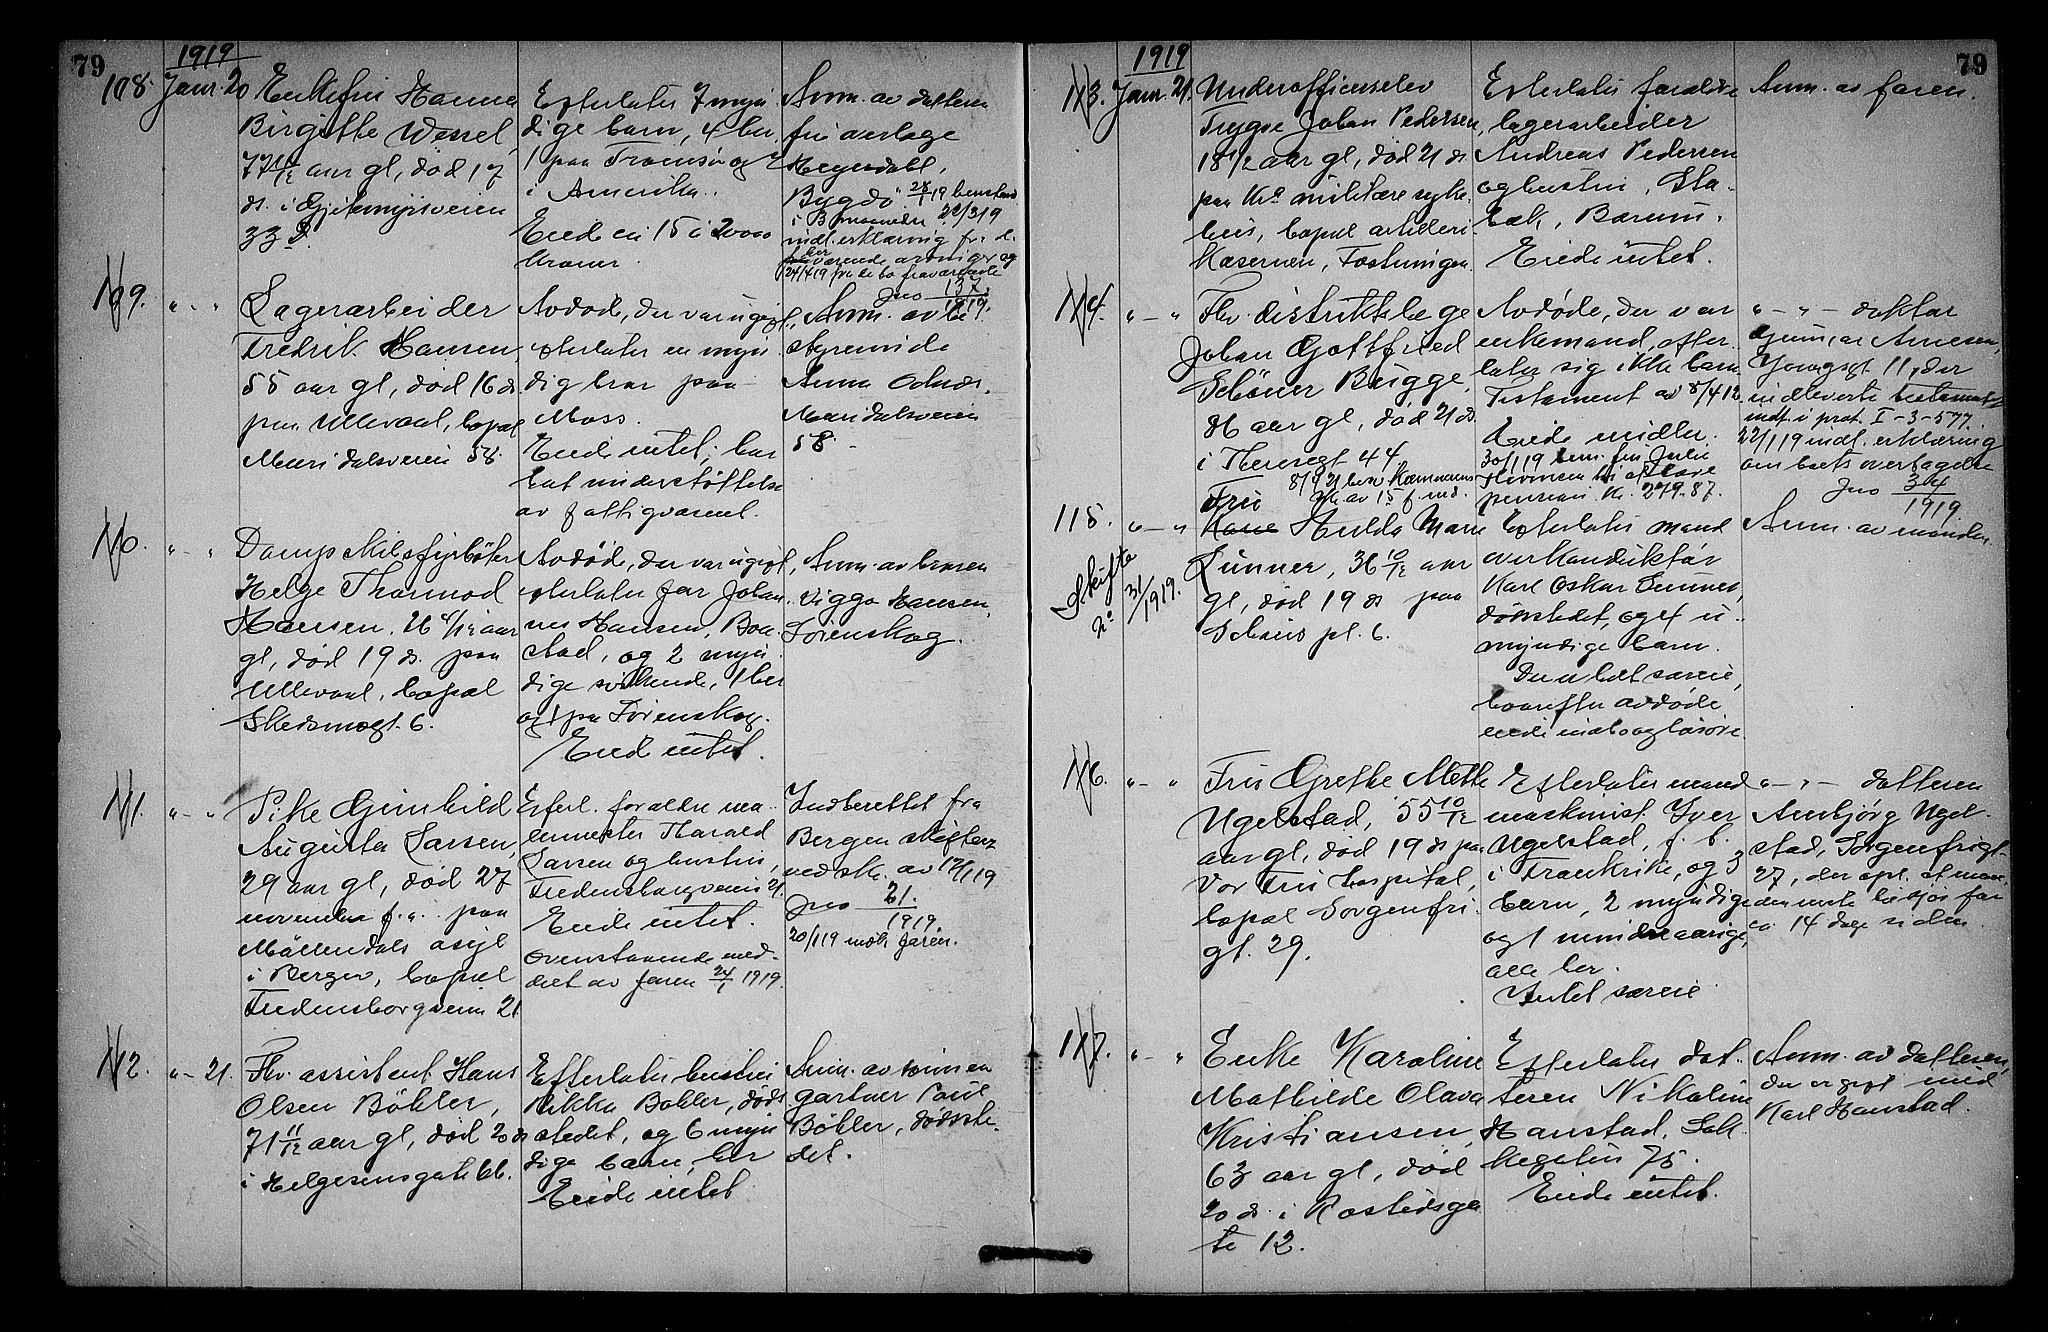 79
1919
108. Janr. 20
Enkefru Hanna
Birgitte Wessel,
77 11/12 aar gl, död 17
ds. i Gjeitemyrsveien
33 D.
Efterlater 7 myn
dige barn, 4 her
1 paa Tromsö og 2
i Amerika.
Eiede ca 15 à 20000
kroner.
Anm. av datteren
fru overlege
Heyerdahl,
Bygdö. 28/1 19 henstand
i 3 maaneder. 22/3 19
indl. erklæring fra de
her værende arvinger og
24/4 19 fra de bo fraværende
Jno 137/1919.
109. " - "
Lagerarbeider
Fredrik Hansen
55 aar gl, död 16 ds.
paa Ullevaal, bopæl
Maridalsveien 58.
Avdöde, der var ugift,
efterlater en myn
dig bror paa
Moss.
Eiede intet; har
hat understöttelse
av fattigvæsenet.
Anm. av be
styrerinde
Anna
Maridalsveien
58.
110. " - "
Dampskibsfyrböter
Helge Thormod
Hansen, 26 /12 aar
gl, död 19 ds. paa
Ullevaal, bopæl
Skedsmogt. 6.
Avdöde, der var ugift,
efterlater far Johan
nes Hansen, Bon
stad, og 2 myn
dige söskende, 1 her
og 1 paa Törenskog.
Eiede intet.
Anm. av broren
Viggo Hansen,
Törenskog.
111. " - "
Pike Gunhild
Augusta Larsen,
29 aar gl, död 27
november f.a. paa
Möllendals asyl
i Bergen, bopæl
Fredensborgveien 21
Efterl. forældre ma
lermester Harald
Larsen og hustru,
Fredensborgveien 21.
Eiede intet.
Ovenstaaende med-
delt av faren 24/1 1919.
Indberettet fra
Bergen skifteret
ved skr. av 17/1 19
Jno 21./1919.
20/1 19 indk. faren.
112. " - 21.
Fhv. assistent Hans
Olsen Böhler,
71 11/12 aar gl, död 20 ds
i Helgesensgate 66.
Efterlater hustru
Rikka Böhler, döds
stedet, og 6 myn
dige barn, her
Eiede intet
Anm. av sönnen
gartner Paul
Böhler, dödsste-
det.
79
1919
113. Janr. 21.
Underofficerselev
Trygve Johan Pedersen,
18 1/2 aar gl, död 21 ds.
paa Kra militære syke
hus, bopæl artilleri
kasernen, Fæstningen.
Efterlater forældre
lagerarbeider
Andreas Pedersen
og hustru, Sta-
bæk, Bærum.
Eiede intet.
Anm. av faren.
114. " - "
Fhv. distriktslæge
Johan Gottfried
Schöner Bugge,
aar gl, död 21 ds.
i Theresgt 44
8/9 21 besv. Kæmneren
skr. av 15 f. md.
Avdöde, der var
enkemand, efter
later sig ikke barn.
Testament av 8/4 12
Eiede midler.
30/1 19 bem. frk Julie
pension kr. 279.87.
" - " - doktor
Gunnar Arnesen,
Youngsgt 11, der
indleverte testamentet
indt. i prot. I-3-577.
22/1 19 indl. erklæring
om boets overtagelse
Jno 34/1919
115. " - "
Skifte
No 31/1919.
Fru
Kone Hulda Marie
Lunner, 36 10/12 aar
gl, död 19 ds paa
Schous pl. 6.
Efterlater mand
overkonduktör
Karl Oskar Lunner,
dödsstedet, og 4 u
myndige barn.
Der er hat særeie,
hvorefter avdöde
eiede indbo og lösöre
Anm. av manden.
116. " - "
Fru Grethe Mette
Ugelstad, 55 10/12
aar gl, död 19 ds paa
Vor Frue hospital,
bopæl Sorgenfri-
gt. 29.
Efterlater mand
maskinist Iver
Ugelstad, f. t.
i Frankrike, og 3
barn, 2 myndige
og 1 mindreaarige,
alle her.
Intet særeie
" - " - datteren
Arnbjörg Ugel-
stad, Sorgenfrigt-
27, der opl. at man-
den reiste tilsjös for
ca 14 dage siden
117. " - "
Enke Karoline
Mathilde Olava
Kristiansen,
63 aar gl, död
20 ds. i Rostedsga
te 12.
Efterlater dat-
teren Nikoline
Hanstad,
75.
Eiede intet.
Anm. av datteren,
der er gift med
Karl Hanstad.